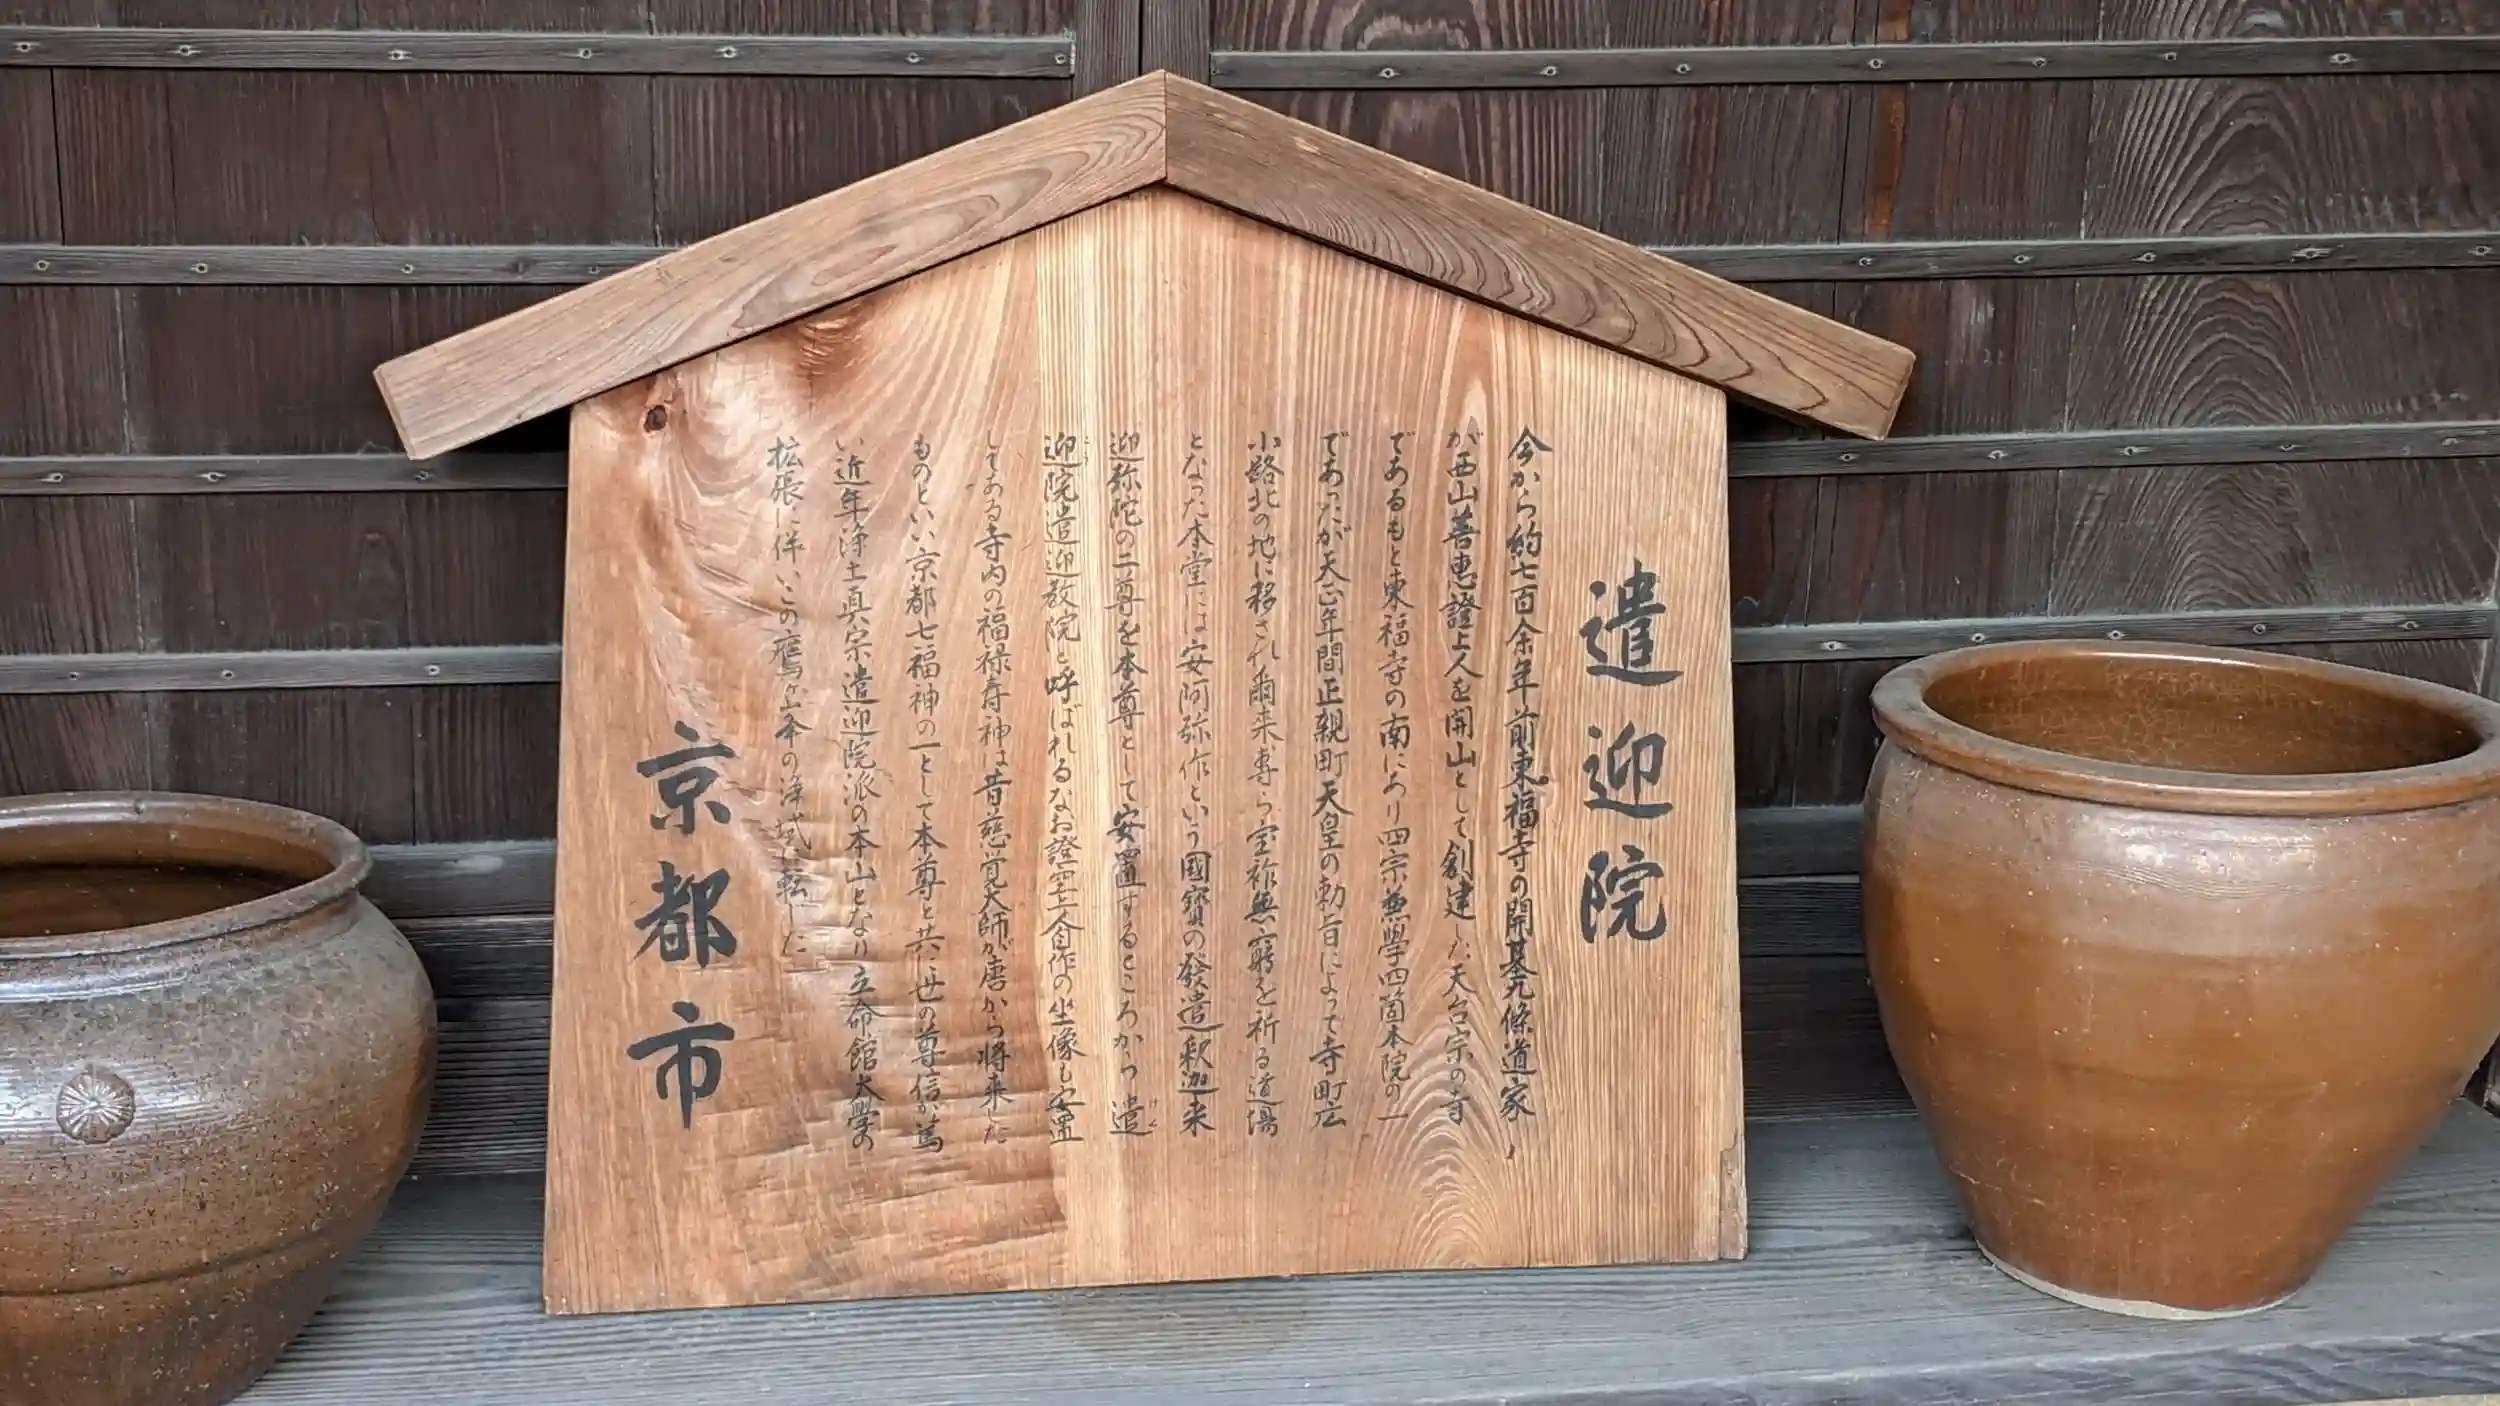 遣迎院
今から約七百余年前東福寺の開基九條道家
が西山善恵證上人を開山として創建した天台宗の寺
であるもと東福寺の南にあり四宗兼學四箇本院の一
であったが天正年間正親町天皇の勅旨によって寺町広
小路北の地に移され爾来専ら宝祚無窮を祈る道場
となった本堂には安阿弥作という國寳の發遣釈迦来
迎弥陀の二尊を本尊として安置するところから遣
迎院遣迎教院と呼ばれるなお證空上人自作の坐像も安置
してある寺内の福禄寿神は昔慈覚大師が唐から将来した
ものといい京都七福神の一として本尊と共に世の尊信が篤
い近年浄土真宗遣迎院派の本山となり立命館大學の
拡張に伴いこの鷹ヶ峯の浄域に転じた
京都市